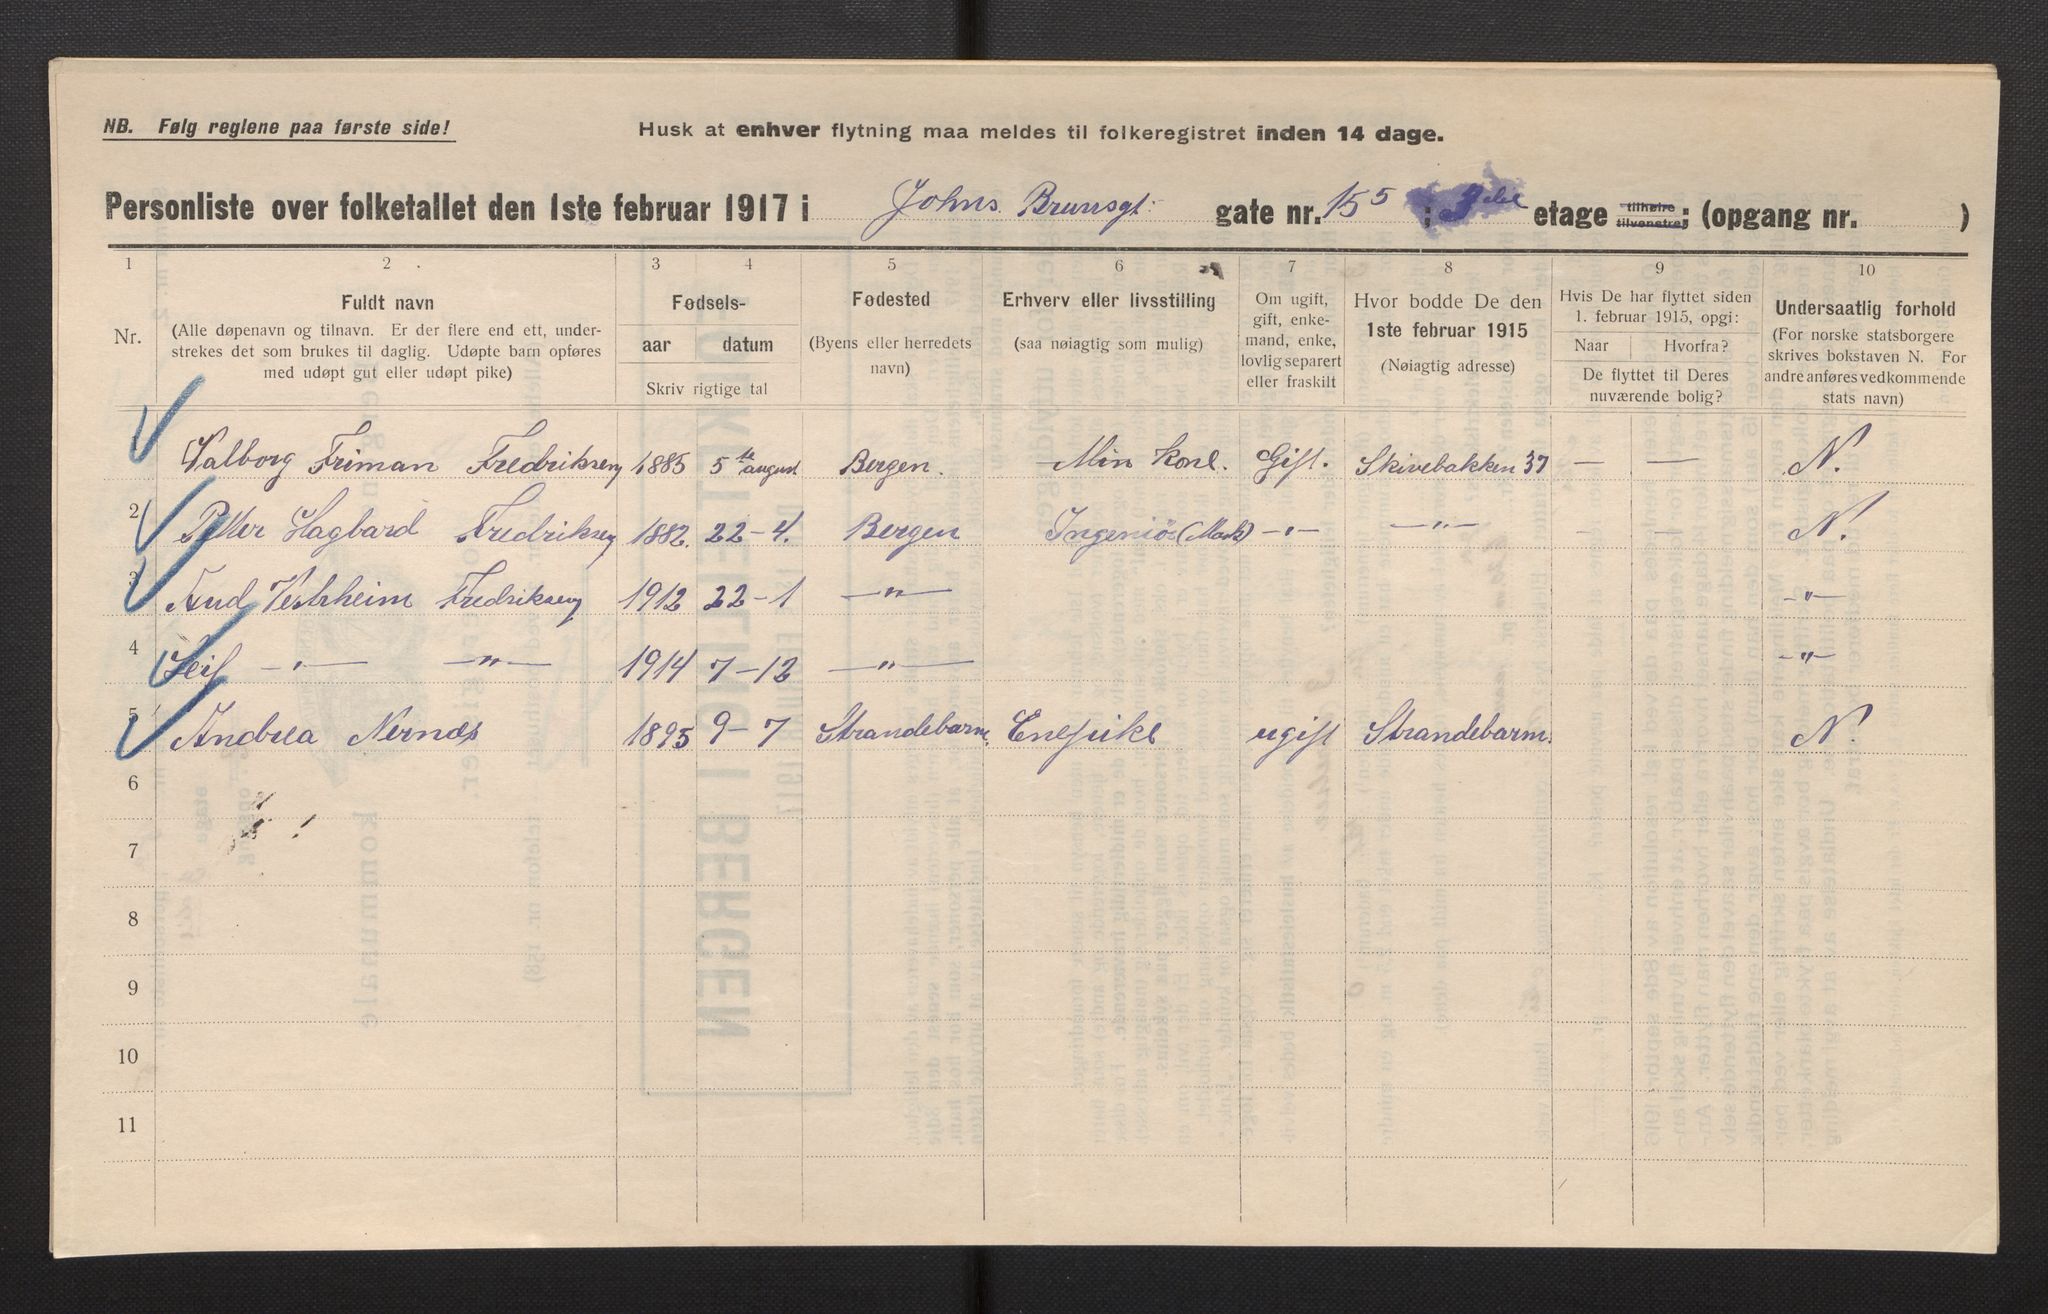 NB. Følg reglene paa første side!
Husk at enhver flytning maa meldes til folkeregistret inden 14 dage.
Personliste over folketallet den 1ste februar 1917 i Johns Brunsgt: gate nr. 15 5 ; 3die etage tilhøire tilvenstre; (opgang nr. )
1 2 3 4 5 6 7 8 9 10
Nr.
Fuldt navn
(Alle døpenavn og tilnavn. Er der flere end ett, under-
strekes det som brukes til daglig. Udøpte barn opføres
med udøpt gut eller udøpt pike)
Fødsels-
aar datum
Skriv rigtige tal
Fødested
(Byens eller herredets
navn)
Erhverv eller livsstilling
(saa nøiagtig som mulig)
Om ugift,
gift, enke-
mand, enke,
lovlig separert
eller fraskilt
Hvor bodde De den
1ste februar 1915
(Nøiagtig adresse)
Hvis De har flyttet siden
1. februar 1915, opgi:
Naar Hvorfra?
De flyttet til Deres
nuværende bolig?
Undersaatlig forhold
(For norske statsborgere
skrives bokstaven N. For
andre anføres vedkommende
stats navn)
Valborg Friman Fredriksen 1885 5te august Bergen. Min kone. Gift. Skivebakken 37 — — N.
2 Petter Hagbard Fredriksen 1882. 22-4. Bergen Ingeniør (Mask) -"- -"- - - N.
3 Aud Vestrheim Fredriksen 1912 22-1 -"- -"-
4 Leif -"- -"- 1914 7-12 -"- -"-
5 Andrea Nernæs 1895 9-7 Strandebarm. Enepike ugift Strandebarm. N.
6
7
8
9
10
11